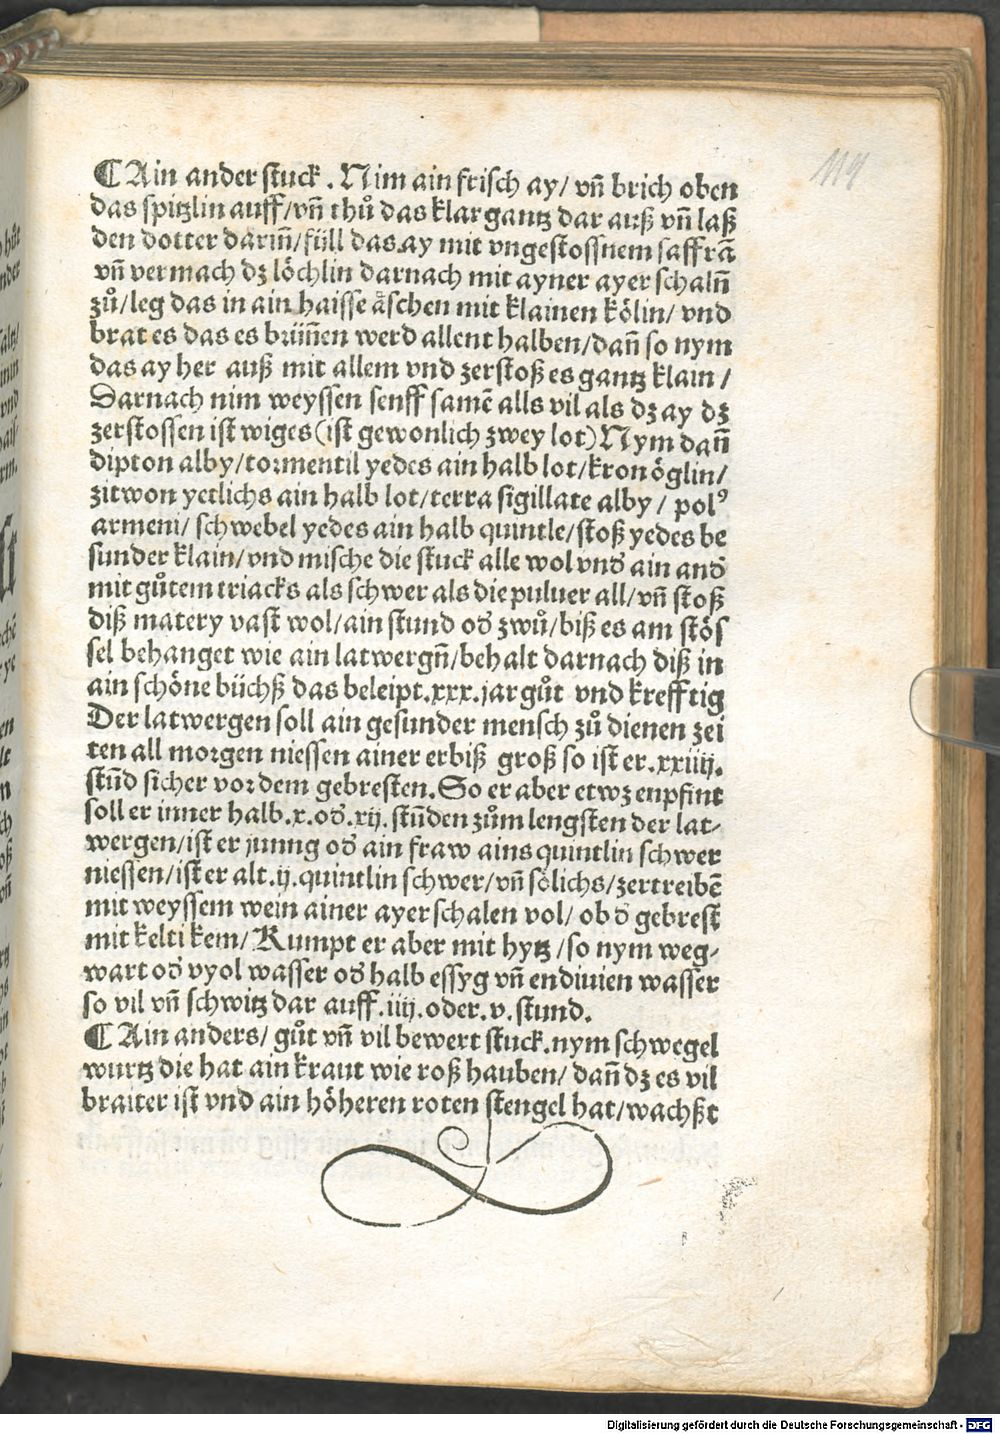 119
¶ Ain ander stuck . Nim ain frisch ay/ vñ brich oben
das spitzlin auff/vñ thů das klar gantz dar auß vñ laß
den dotter dariñ/füll das ay mit vngestossnem saffrã
vñ vermach dz löchlin darnach mit ayner ayer schalñ
zů/leg das in ain haisse äschen mit klainen kölin/ vnd
brat es das es brüñen werd allent halben/dañ so nym
das ay her auß mit allem vnd zerstoß es gantz klain /
Darnach nim weyssen senff samẽ alls vil als dz ay dz
zerstossen ist wiges(ist gewonlich zwey lot)Nym dañ
dipton alby/tormentil yedes ain halb lot/kron öglin/
zitwon yetlichs ain halb lot/terra sigillate alby / polꝰ
armeni/ schwebel yedes ain halb quintle/stoß yedes be
sunder klain/vnd mische die stuck alle wol vnđ ain anđ
mit gůtem triacks als schwer als die puluer all/vñ stoß
diß matery vast wol/ain stund ođ zwů/biß es am stös
sel behanget wie ain latwergñ/behalt darnach diß in
ain schöne büchß das beleipt.xxx.jar gůt vnd krefftig
Der latwergen soll ain gesunder mensch zů dienen zei
ten all morgen niessen ainer erbiß groß so ist er.xxiiij.
stũd sicher vor dem gebresten.So er aber etwz enpfint
soll er inner halb.x.ođ.xij.stũden zům lengsten der lat-
wergen/ist er junng ođ ain fraw ains quintlin schwer
niessen/ist er alt.ij.quintlin schwer/vñ sölichs/zertreibẽ
mit weyssem wein ainer ayer schalen vol/ ob đ gebrest
mit kelti kem/ Kumpt er aber mit hytz /so nym weg-
wart ođ vyol wasser ođ halb essyg vñ endiuien wasser
so vil vñ schwitz dar auff.iiij.oder.v.stund.
¶ Ain anders/ gůt vñ vil bewert stuck.nym schwegel
wurtz die hat ain kraut wie roß hauben/ dañ dz es vil
braiter ist vnd ain höheren roten stengel hat/wachßt
Digitalisierung gefördert durch die Deutsche Forschungsgemeinschaft - DFG